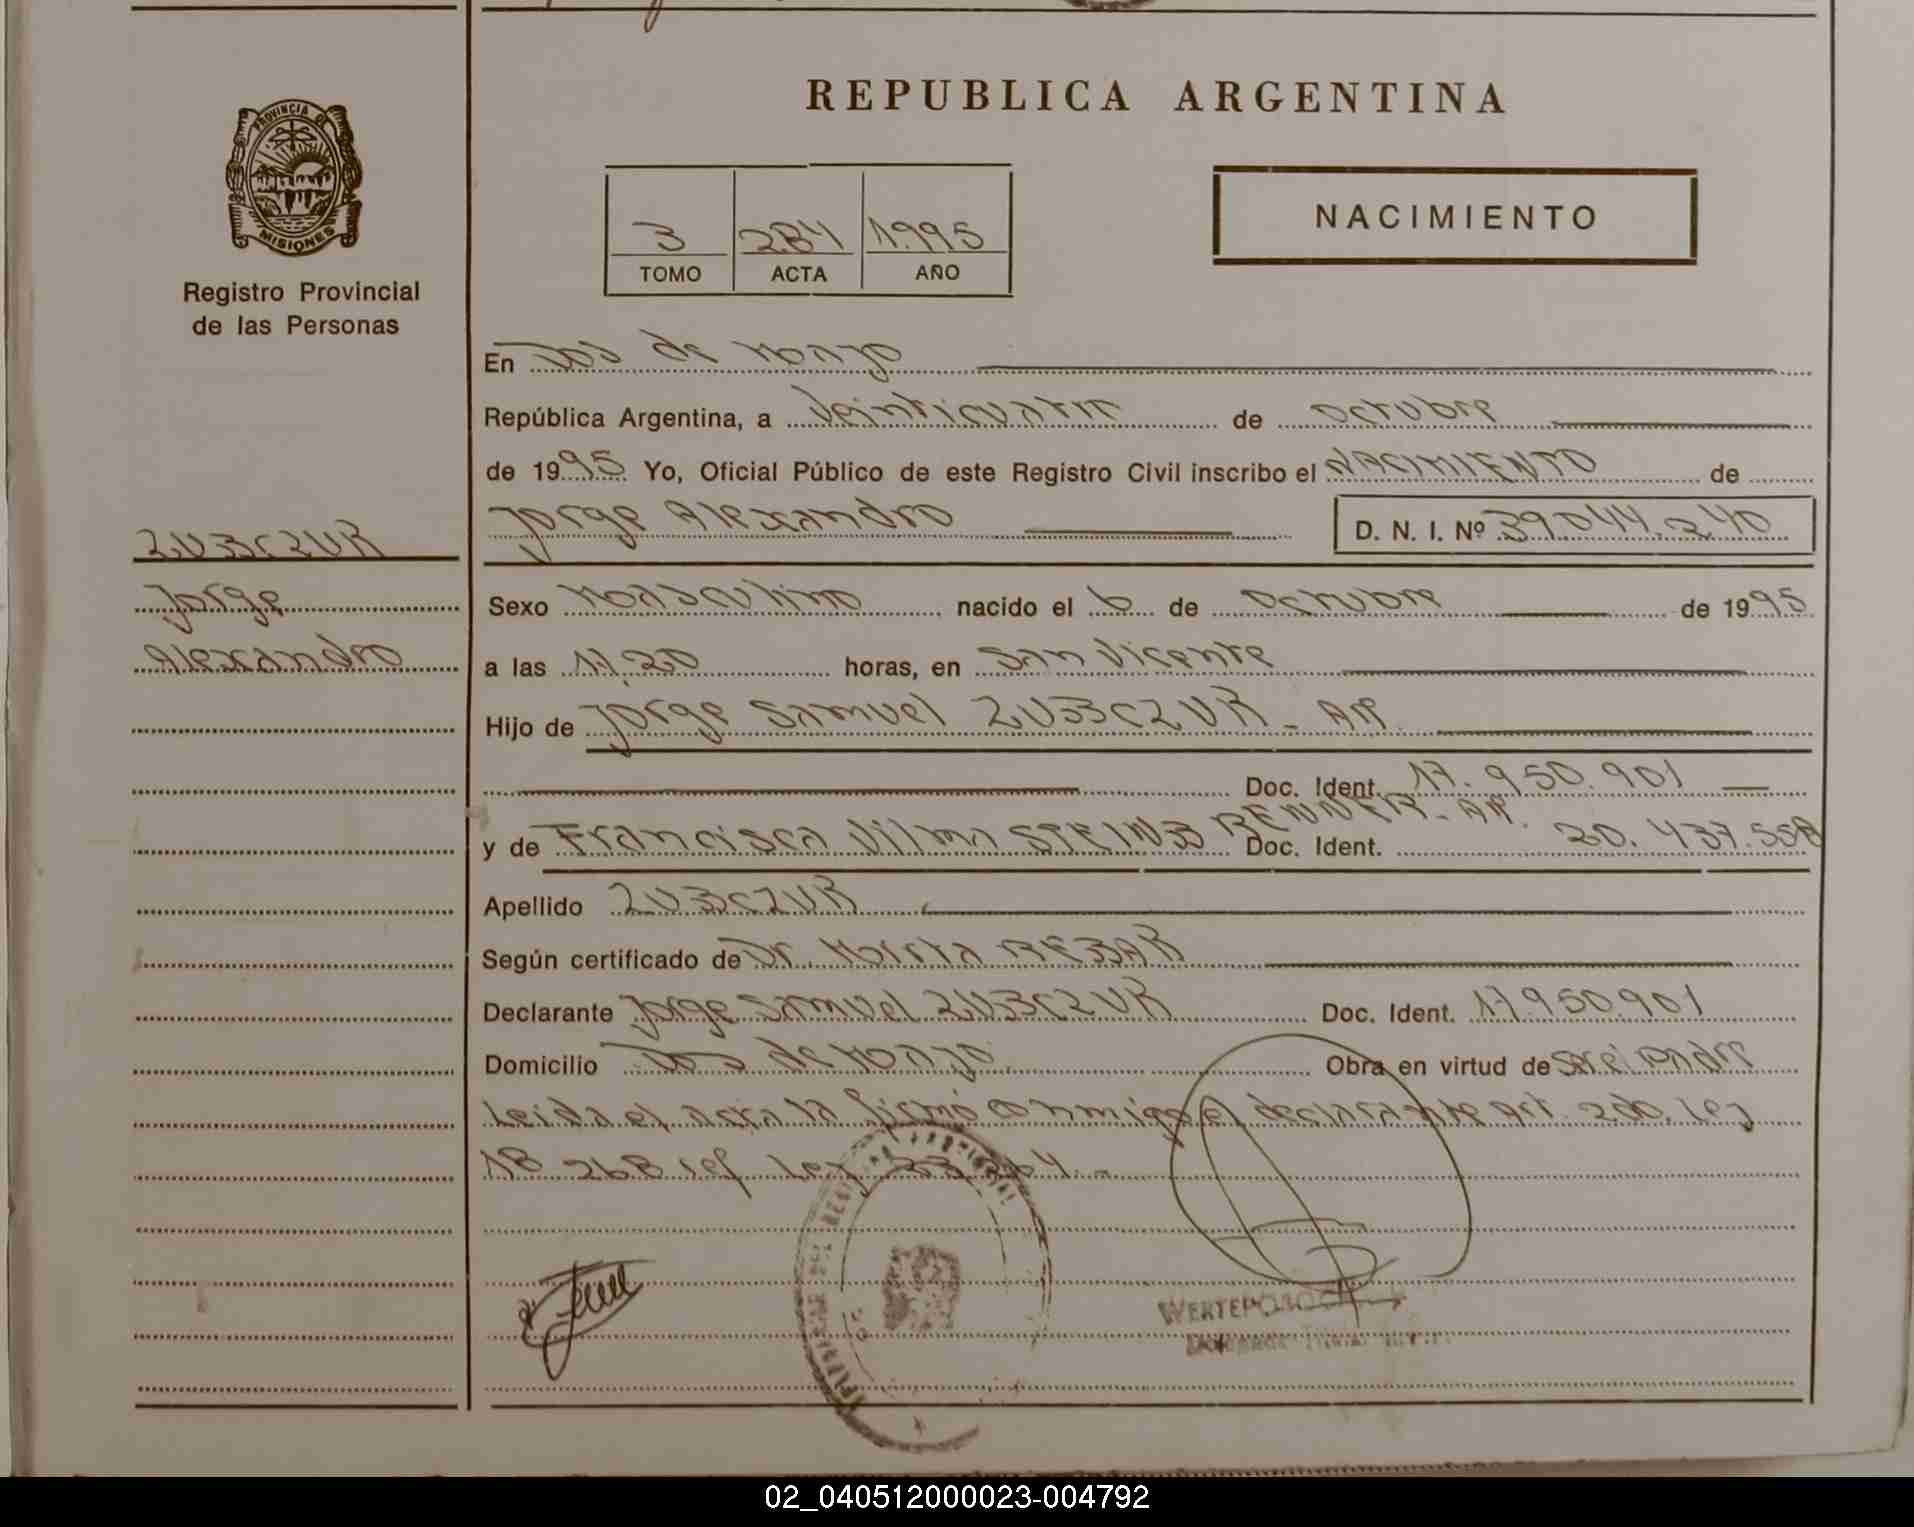 REPUBLICA ARGENTINA
PROVINCIA DE
MISIONES
Registro Provincial
de las Personas
3 284 1.995
TOMO ACTA AÑO
NACIMIENTO
En Dos de Mayo
República Argentina, a Veinticuatro de octubre
de 1995 Yo, Oficial Público de este Registro Civil inscribo el NACIMIENTO de
Jorge Alexandro D. N. I. Nº 39.044.240
ZUBCZUR
Jorge
Alexandro
Sexo Masculino nacido el 6 de Octubre de 1995
a las 11,20 horas, en San Vicente
Hijo de Jorge Samuel ZUBCZUR - AR.
Doc. Ident. 17.950.901
y de Francisca Vilma STEINBRENNER - AR. Doc. Ident. 20.437.558
Apellido ZUBCZUR
Según certificado de Dr. REBAR
Declarante Jorge Samuel ZUBCZUR Doc. Ident. 17.950.901
Domicilio Dos de Mayo Obra en virtud de ser el Padre
Leida el acta la firmó conmigo el declarante Art. 2do. Ley
18.268 ref Ley
02_040512000023-004792